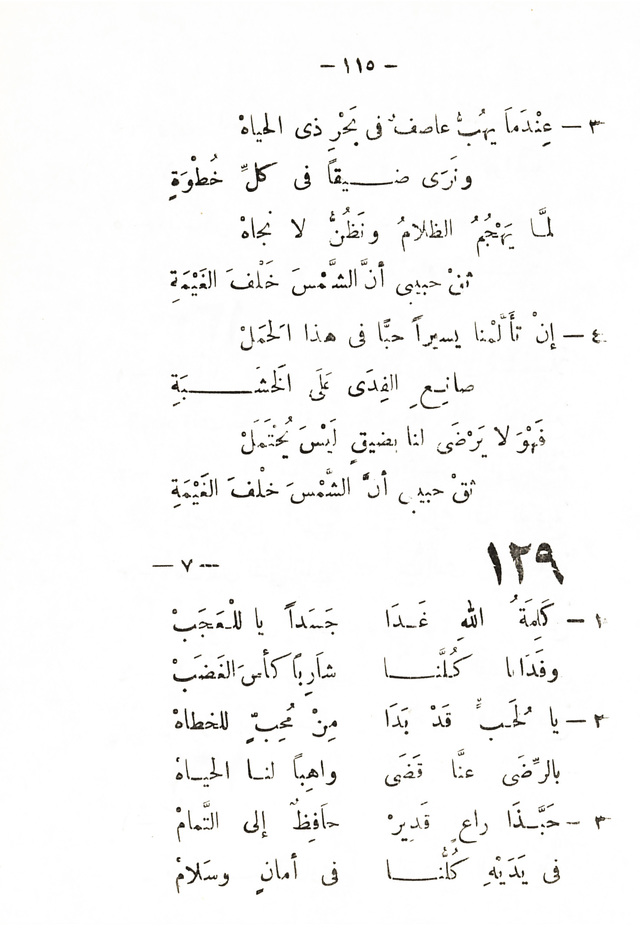 – ١١٥ –
٣ – عِنْدَمَا يَهُبُّ عاصفٌ فى بَحْرِ ذى الحياهْ
ونَرَى ضيقاً فى كلِّ خُطْوَةِ
لمَّا يَهْجُمُ الظلامُ ونَظُنُّ لا نجاهْ
ثقْ حبيبى أنَّ الشَّمْسَ خَلْفَ الغَيْمَةِ
٤ – إنْ تأَلَّمْنا يسيراً حبًّا فى هذا الحَمَلْ
صانِعِ الفِدَى عَلَى الخَشَبَةِ
فَهْوَ لا يَرْضَى لنا بضيقٍ لَيْسَ يُحْتَمَلْ
ثقْ حبيبى أنَّ الشَّمْسَ خلْفَ الغَيْمَةِ
١٢٩ – ٧ –
١ – كَلِمَةُ اللهِ غَدَا جَسَداً يا للْعَجَبْ
وفَدَانا كُلَّنا شارِباً كأسَ الغَضَبْ
٢ – يا لَحُبٍّ قَدْ بَدَا مِنْ مُحِبٍّ للخطاهْ
بالرِّضَى عنَّا قَضَى واهِباً لنا الحياهْ
٣ – حَبَّذَا راعٍ قَدِيرْ حاَفِظٌ إلى التَّمامْ
فى يَدَيْهِ كُلُّنا فى أمانٍ وسَلامْ